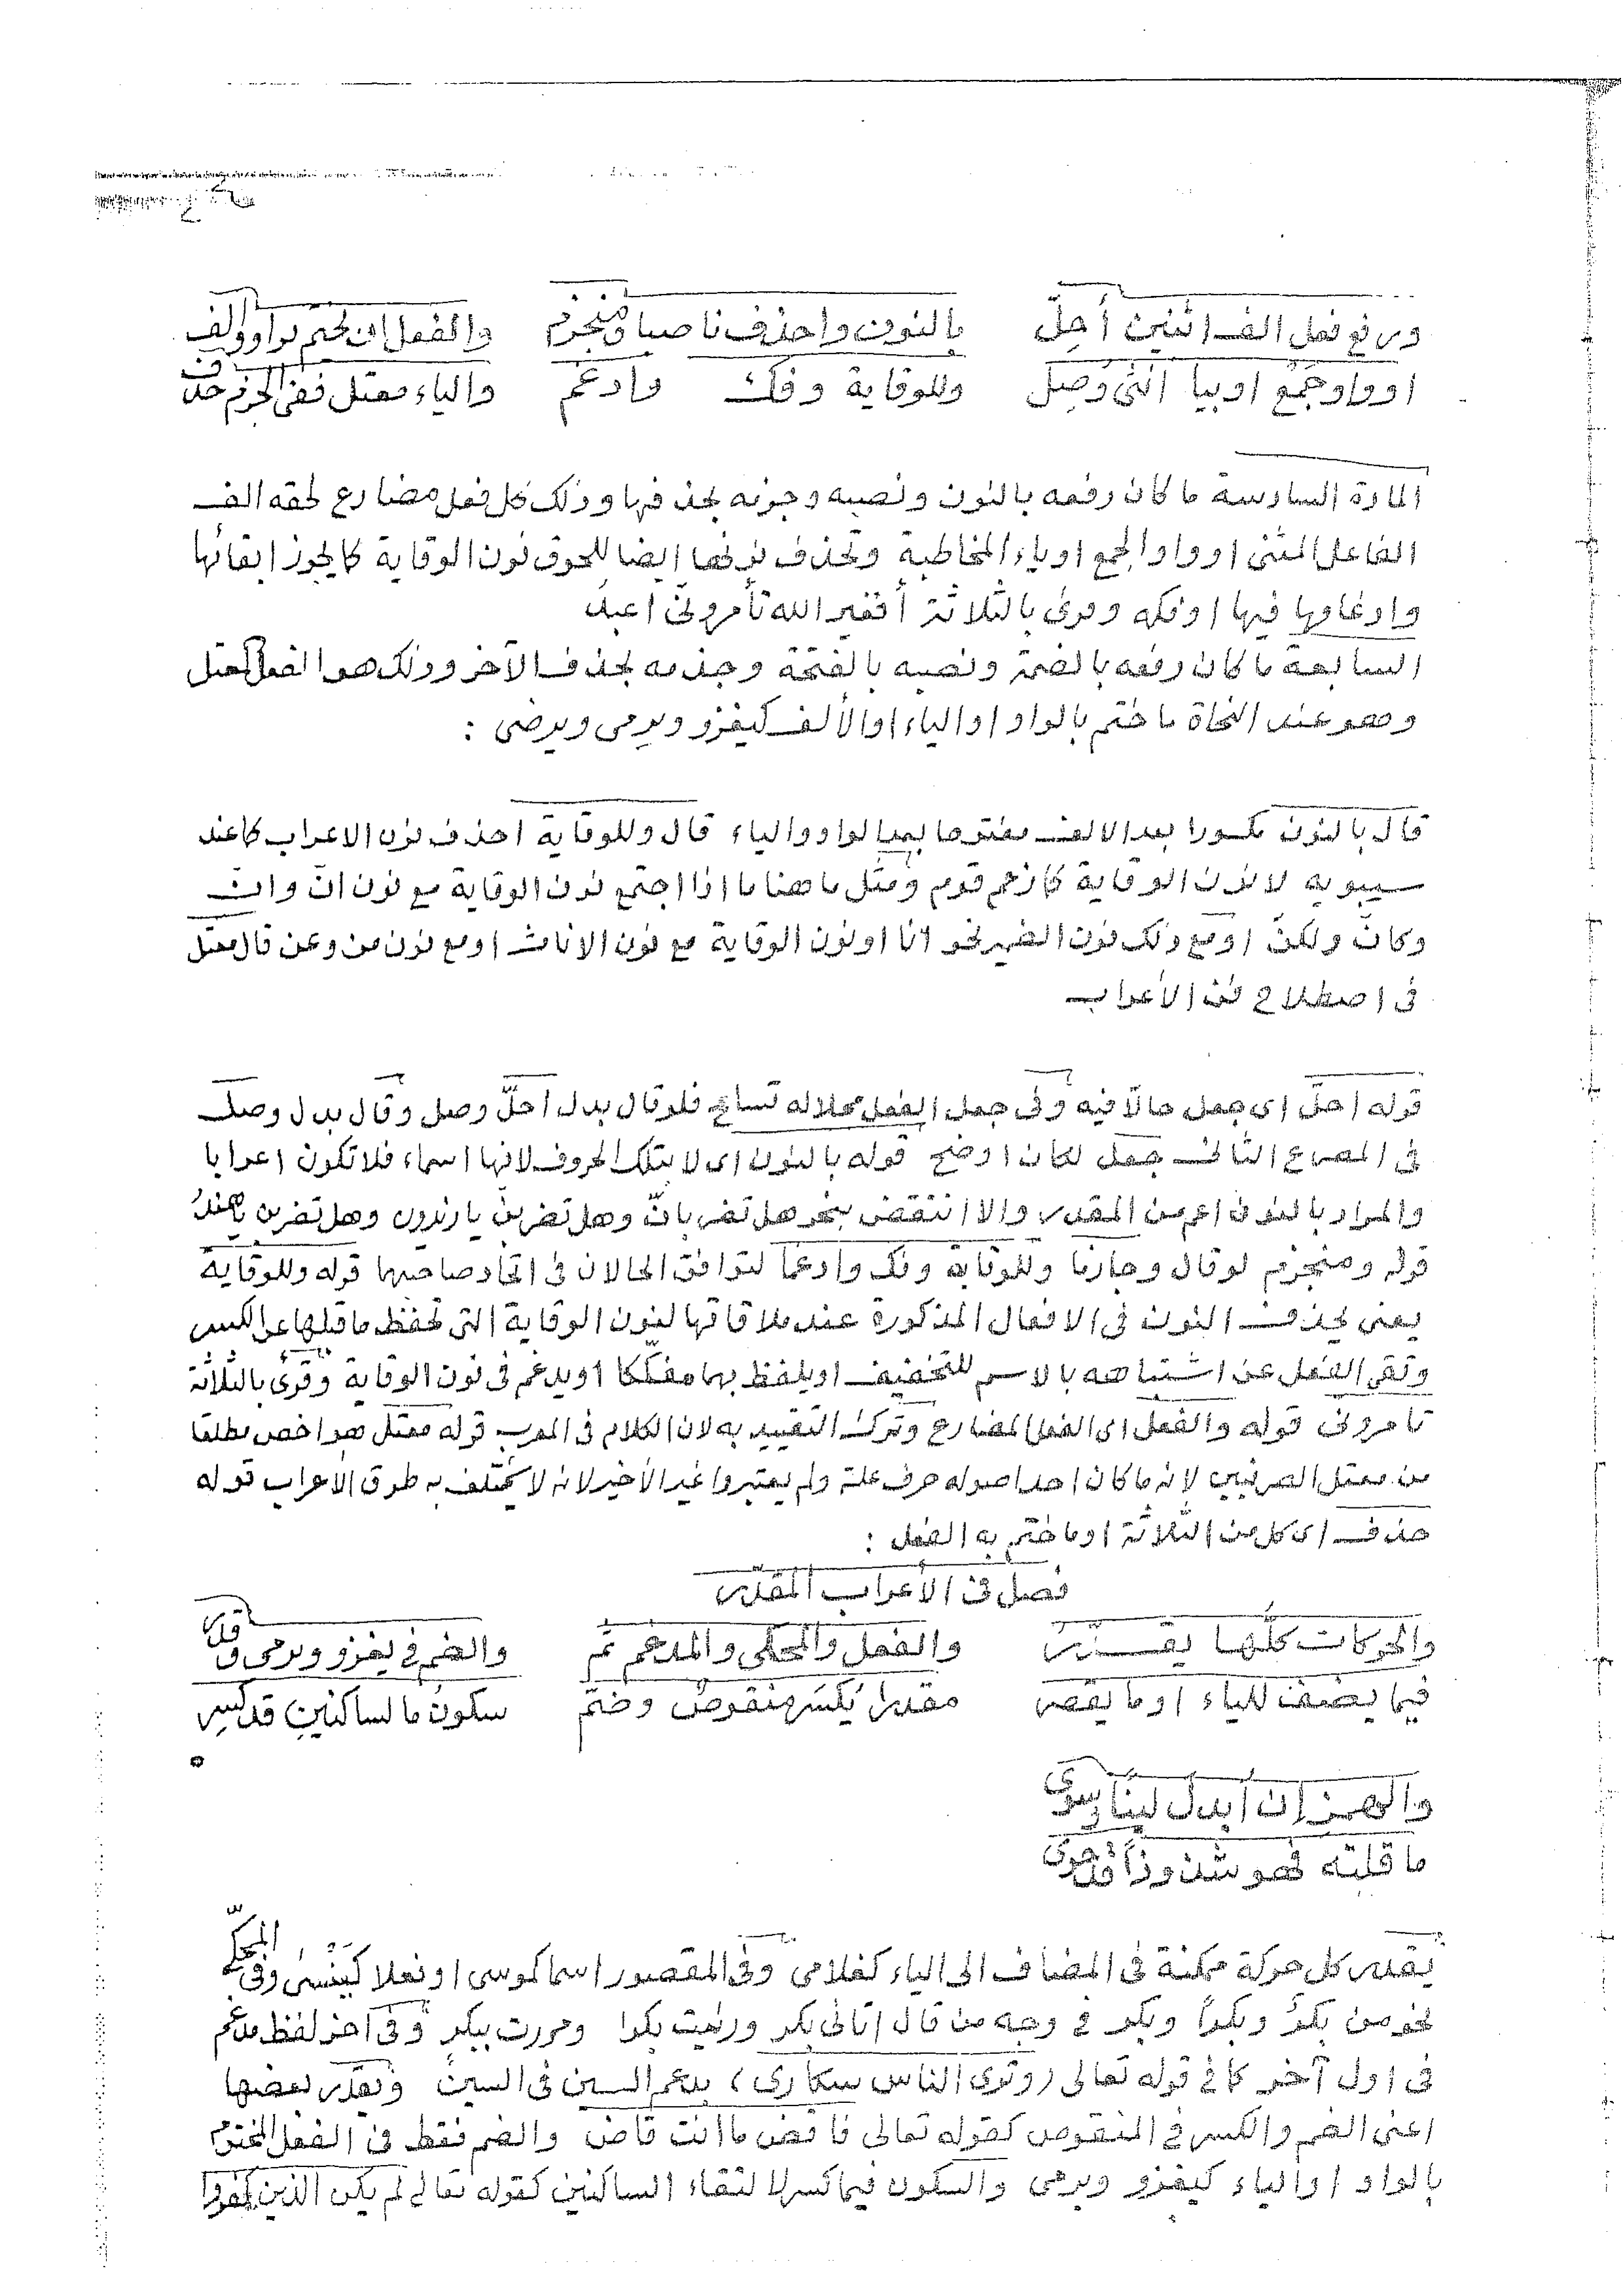 ورفع فعل الف اثنين أحلّ بالنون واحذف ناصبا ومنجزم والفعل ان يختم بواو والف
او واو جمع او بيا انثى وصل وللوقاية وفك وادغم والياء معتل ففى الجزم حذف
المادة السادسة ما كان رفعه بالنون ونصبه وجزمه بحذفها وذلك كل فعل مضارع لحقه الف
الفاعل المثنى او واو الجمع او ياء المخاطبة وتحذف نونها ايضا للحوق نون الوقاية كما يجوز ابقائها
وادغامها فيها او فكه وقرئ بالثلاثة أفغير الله تأمرونى اعبد
السابعة ما كان رفعه بالضمة ونصبه بالفتحة وجذمه بحذف الآخر وذلك هو الفعل المعتل
وهو عند النحاة ما ختم بالواو او الياء او الألف كيغزو ويرمى ويرضى :
قال بالنون مكسورا بعد الالف مفتوحا بعد الواو والياء قال وللوقاية احذف نون الاعراب كما عند
سيبويه لا نون الوقاية كما زعم قوم ومثل ما هنا ما اذا اجتمع نون الوقاية مع نون انّ وانّ
وكانّ ولكنّ او مع ذلك نون الضمير نحو انا او نون الوقاية مع نون الاناث او مع نون من وعن قال معتل
فى اصطلاح فن الأعراب
قوله احلّ اى جعل حالّا فيه وفى جعل الفعل محلا له تسامح فلو قال بدل احلّ وصل وقال بدل وصل
فى المصرع الثانى جعل لكان اوضح قوله بالنون اى لا بتلك الحروف لانها اسماء فلا تكون اعرابا
والمراد بالنون اعم من المقدر والا انتقض بنحو هل تضربانّ وهل تضربنّ يا زيدون وهل تضربن يا هندُ
قوله ومنجزم لو قال وجازما وللوقاية وفك وادغما لتوافق الحالان فى اتحاد صاحبهما قوله وللوقاية
يعنى يحذف النون فى الافعال المذكورة عند ملاقاتها لنون الوقاية التى تحفظ ما قبلها عن الكسر
وتقى الفعل عن اشتباهه بالاسم للتخفيف او يلفظ بهما مفكّكا او يدغم فى نون الوقاية وقرئ بالثلاثة
تامرونى قوله والفعل اى الفعل المضارع وترك التقييد به لان الكلام فى المعرب قوله معتل هو اخص مطلقا
من معتل الصرفيين لانه ما كان احد اصوله حرف علة ولم يعتبروا غير الأخير لانه لا يختلف به طرق الأعراب قوله
حذف اى كل من الثلاثة او ما ختم به الفعل :
فصل فى الأعراب المقدّر
والحركات كلّها يقدّر والفعل والمحكى والمدغم ثم والضم فى يغزو ويرمى وقدر
فيما يضف للياء او ما يقصر مقدرا يكسر منقوص وضمّ سكون ما لساكنين قد كسر
والهمز ان أبدل ليناً سوى
ما قلته فهو شذوذاً قد حوى
يقدر كل حركة ممكنة فى المضاف الى الياء كغلامى وفى المقصور اسما كموسى او فعلا كيَنْسى وفى المحكىّ
نحو من بكرٌ وبكراً وبكر فى وجه من قال اتانى بكر ورئيت بكرا ومررت ببكر وفى آخر لفظ مدغم
فى اول آخر كما فى قوله تعالى (وترى الناس سكارى) بدغم السين فى السين وتقدر بعضها
اعنى الضم والكسر فى المنقوص كقوله تعالى فاقض ما انت قاض والضم فقط فى الفعل المختوم
بالواو او الياء كيغزو ويرمى والسكون فيما كسر لالتقاء الساكنين كقوله تعالى لم يكن الذين كفروا